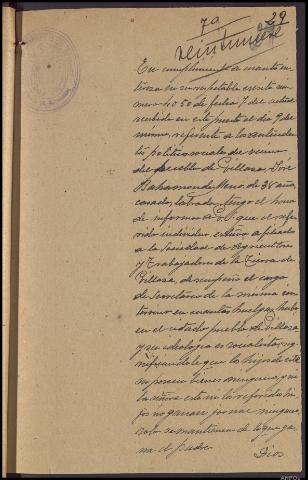 79
29
veintinueve
En cumplimiento a cuanto in
teresa en su respetable escrito nu
mero 4050 de fecha 7 del actual
recibido en este puesto el dia 9 del
mismo, referente a los anteceden
tes politico sociales del vecino
del pueblo de José
Bahamonde de 38 años
casado, labrador, tengo el honor
de informar a V. que el refe
rido individuo estuvo afiliado
a la Sociedad de Agricultores
y Trabajadores de la Tierra de
desempeño el cargo
de Secretario de la misma in
tervino en cuantas huelgas hubo
en el citado pueblo de
y su ideologia es socialista, sig
nificandole que los hijos de este
no poseen bienes ninguno, y ni
la señora esta ni los referidos hi
jos no ganan jornal ninguno,
solo se mantienen de lo que ga
na el padre.
Dios